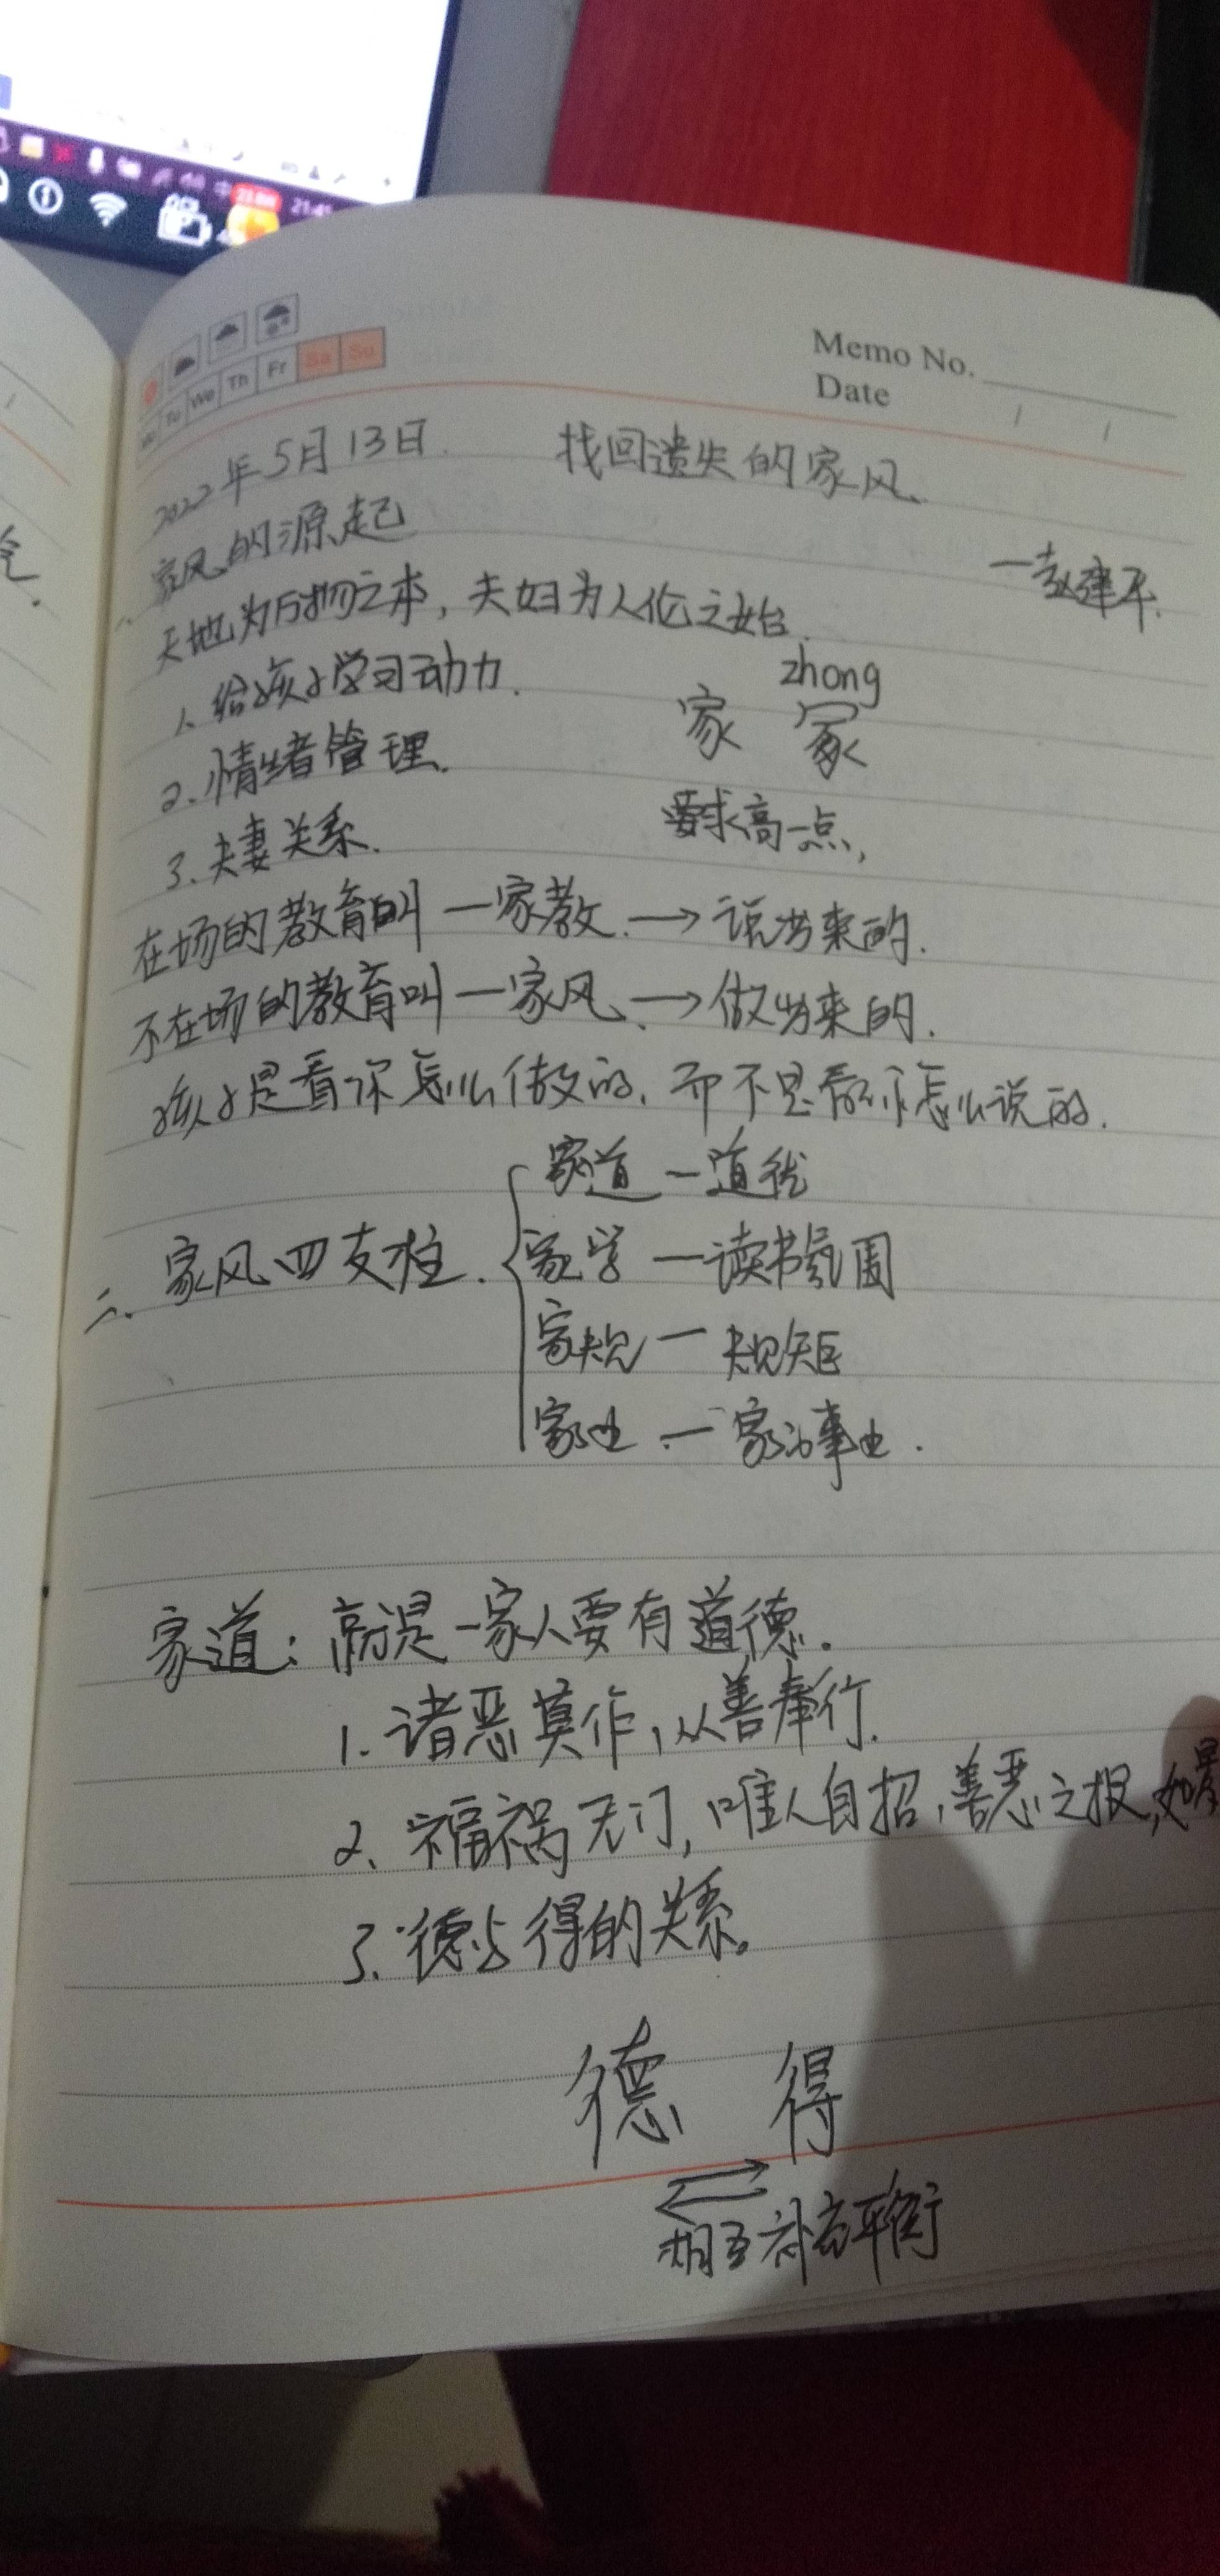 21:41
Memo No.
Tu We Th Fr Sa Su
Date / /
2022年5月13日. 找回遗失的家风、
一、家风的源起
—赵建平.
天地为万物之本，夫妇为人伦之始.
1、给孩子学习动力.
zhong
家 冢
2.情绪管理.
要求高一点,
3.夫妻关系.
在场的教育叫—家教.→说出来的.
不在场的教育叫—家风、→做出来的.
孩子是看你怎么做的,而不是看你怎么说的.
家道—道德
二、家风四支柱. 家学—读书氛围
家规—规矩
家业.—家的事业.
家道:就是一家人要有道德.
1.诸恶莫作,从善奉行.
2、福祸无门,唯人自招,善恶之报,如影
3.德与得的关系。
德 得
相互补充平衡